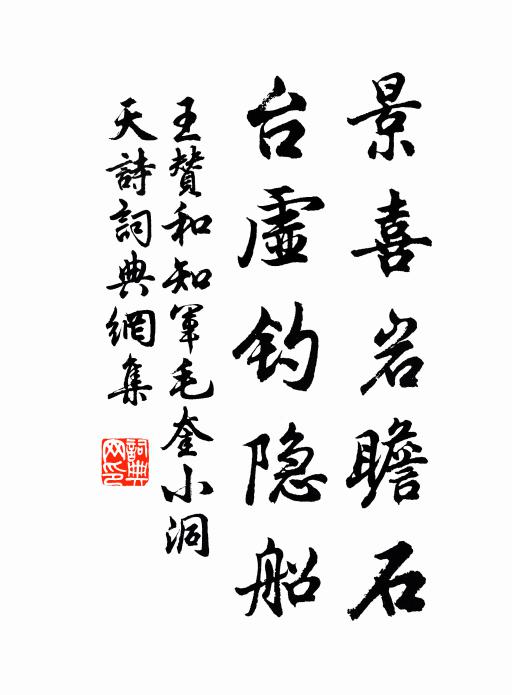 景喜岩瞻石
台虚钓隐船
王赞和知军毛奎小洞
天詩詞典網集
詞典
网印